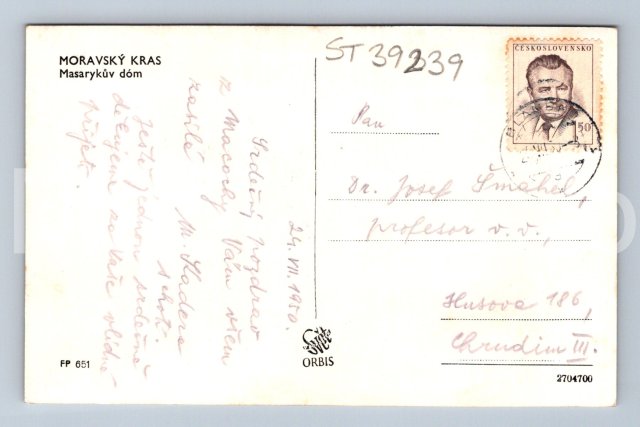 MORAVSKÝ KRAS
Masarykův dóm
ST 39239
ČESKOSLOVENSKO
1,50
24. VII. 1950.
Srdečný pozdrav
z Macochy Vám všem
zasílá
M. Sladera
s chotí.
Ještě jednou srdečně
děkujeme za Vaše vlídné
přijetí.
Pan
Dr. Josef Šmahel,
profesor v. v.,
Husova 186,
Chrudim III.
Svět
ORBIS
FP 651
2704700